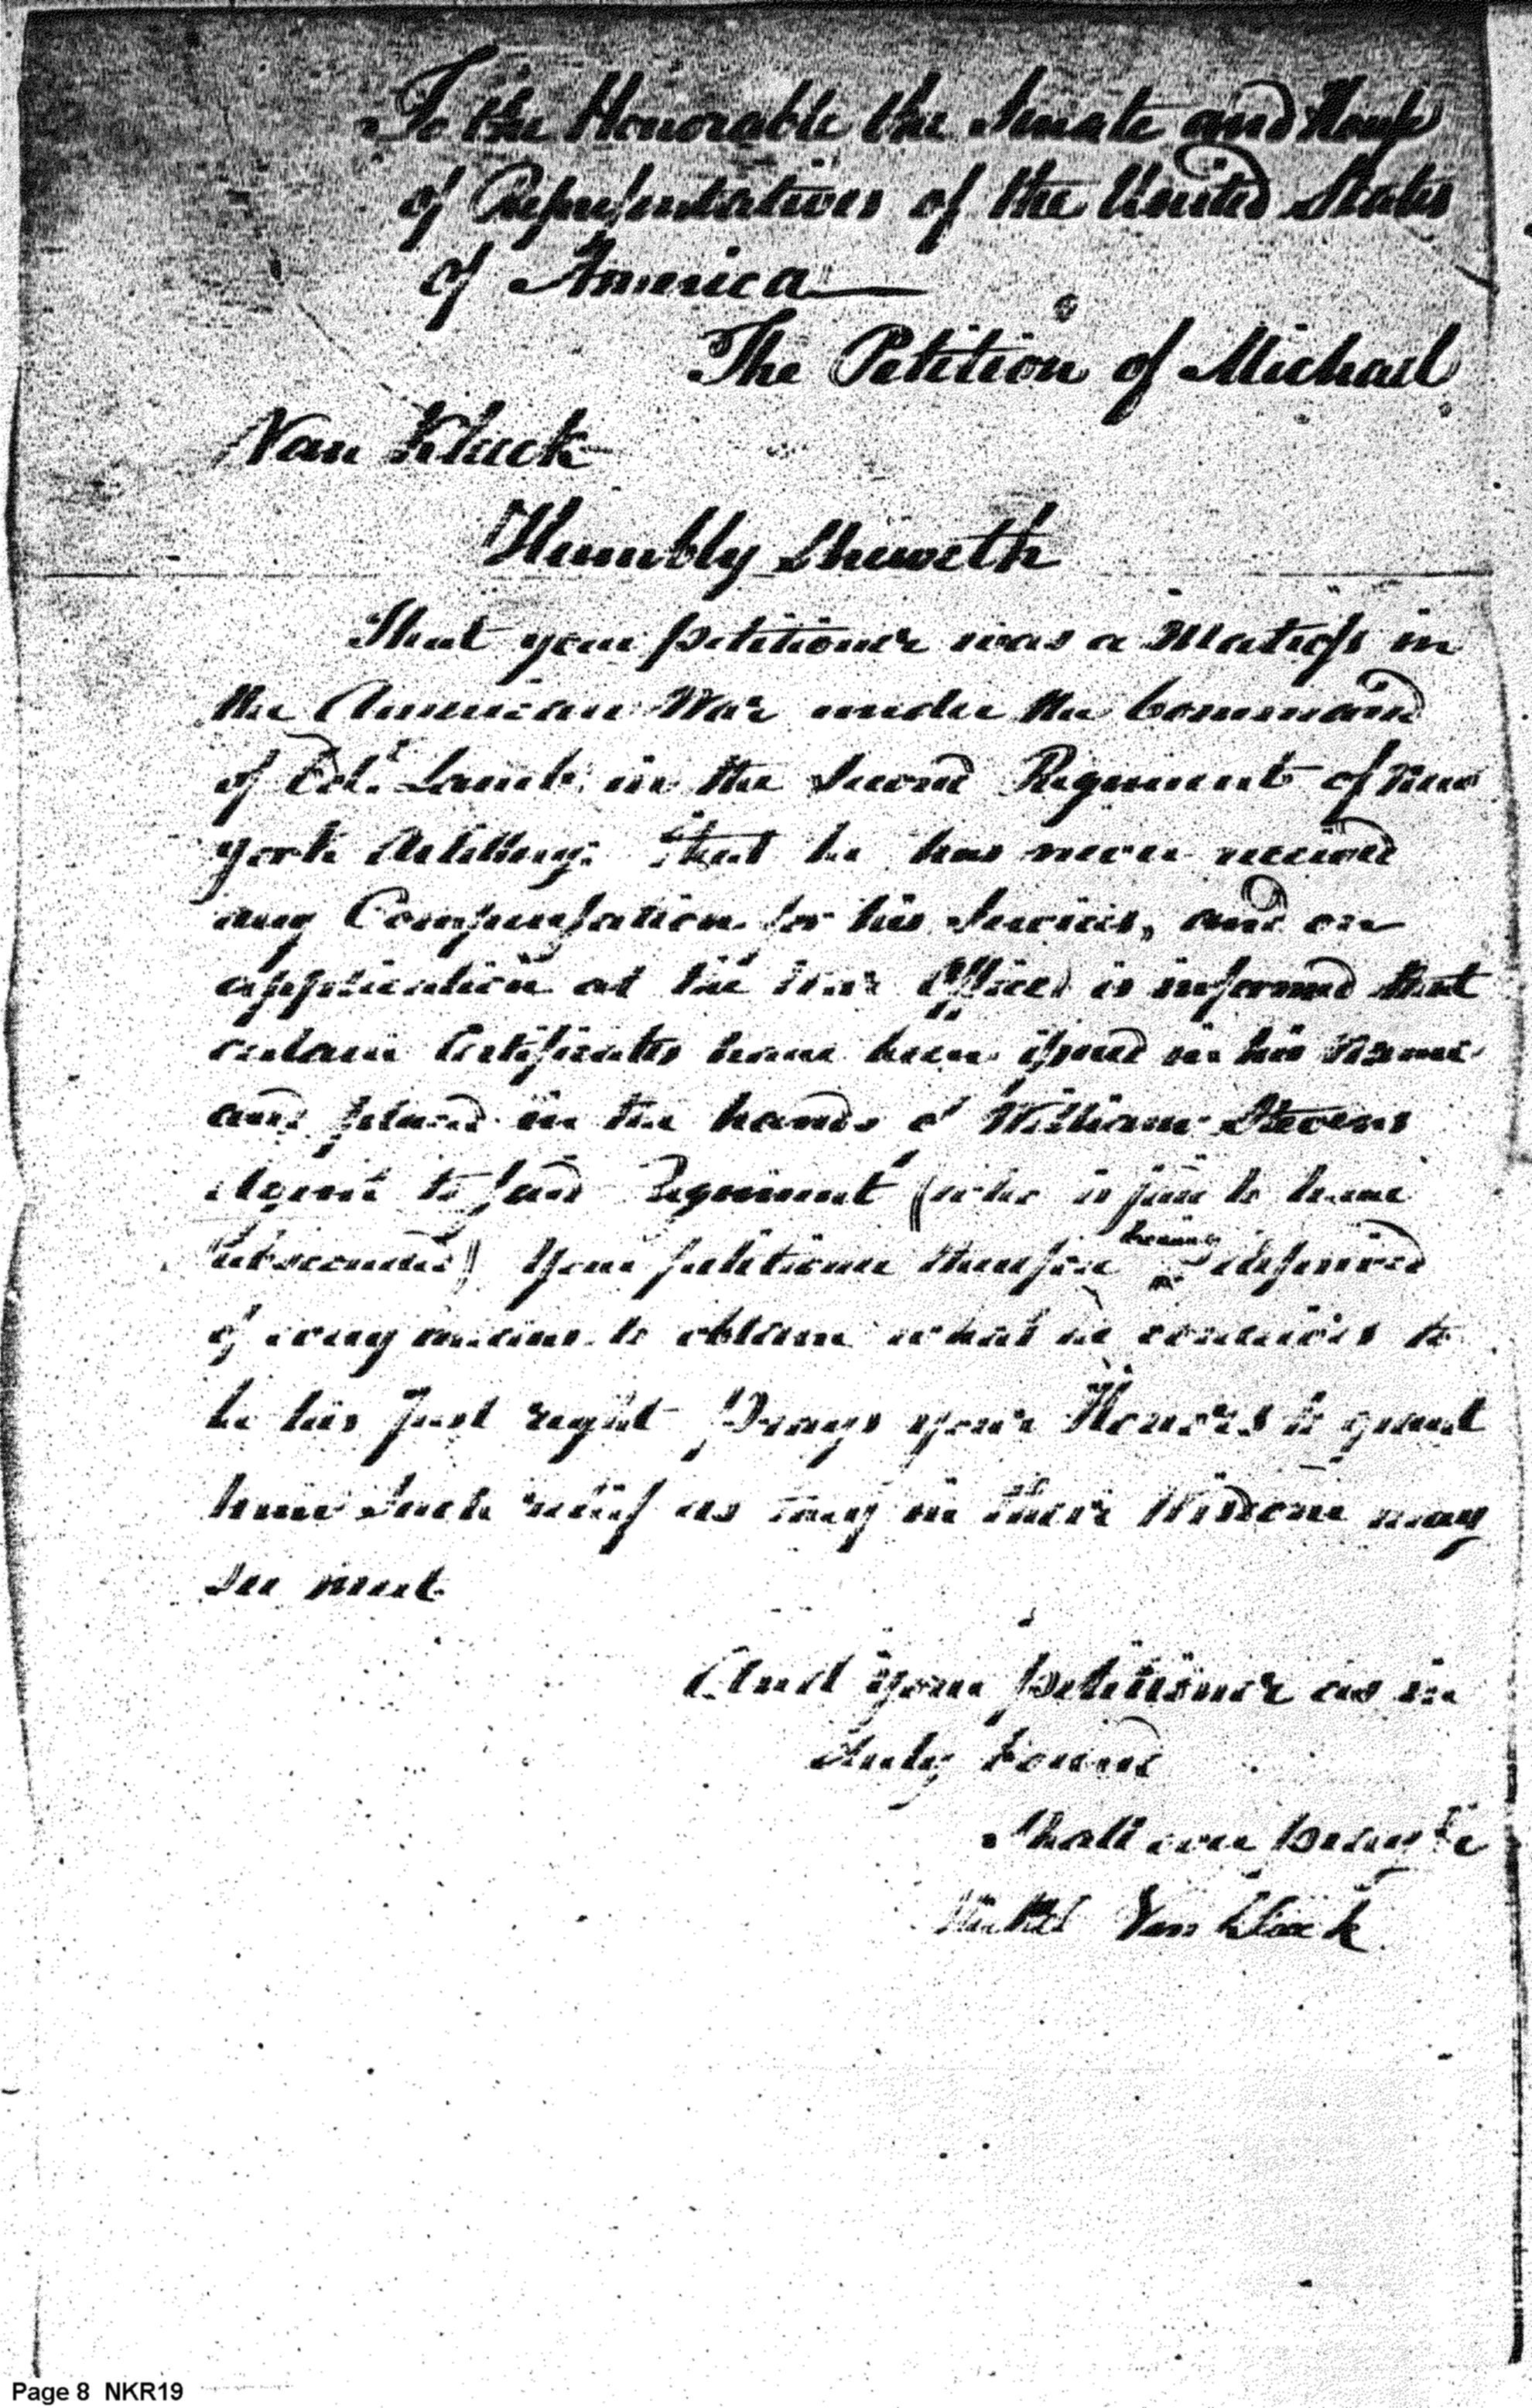 To the Honorable the Senate and House
of Representatives of the United States
of America
The Petition of Michael
Van Kluck
Humbly Sheweth
That your petitioner was a Matross in
the American War under the Command
of Col. Lamb in the Second Regiment of New
york Artillery: that he has never received
any Compensation for his Services, and on
application at the War Office is informed that
certain Certificates have been issued in his name
and placed in the hands of William Stevens
Agent to said Regiment (who is said to have
absconded) Your petitioner therefore
having
deprived
of every means to obtain what he conceives to
be his just right Prays your Honors to grant
him such relief as they in their Wisdom may
see meet.
And your petitioner as in
duty bound
Shall ever pray &c
Van Kluck
Page 8 NKR19